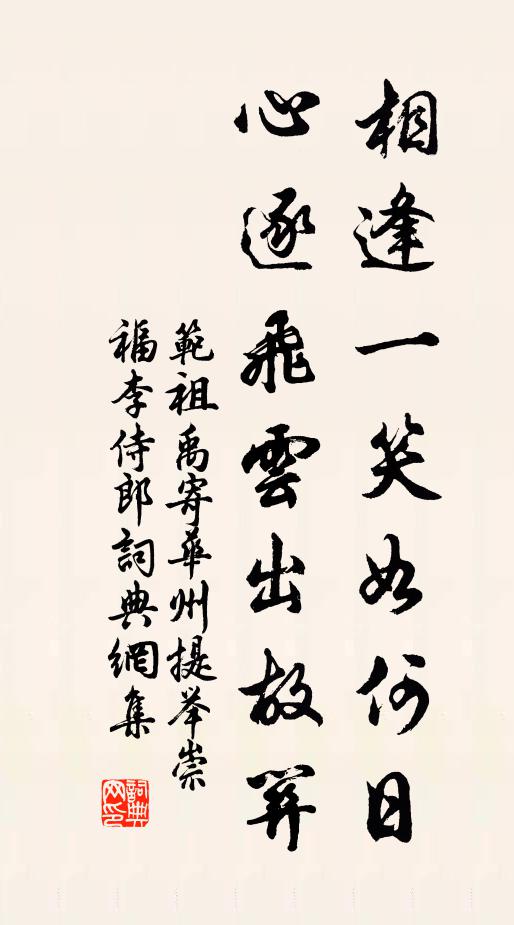 相逢一笑如何日
心逐飛雲出故關
範祖禹寄華州提举崇
福李侍郎詞典網集
詞典网印